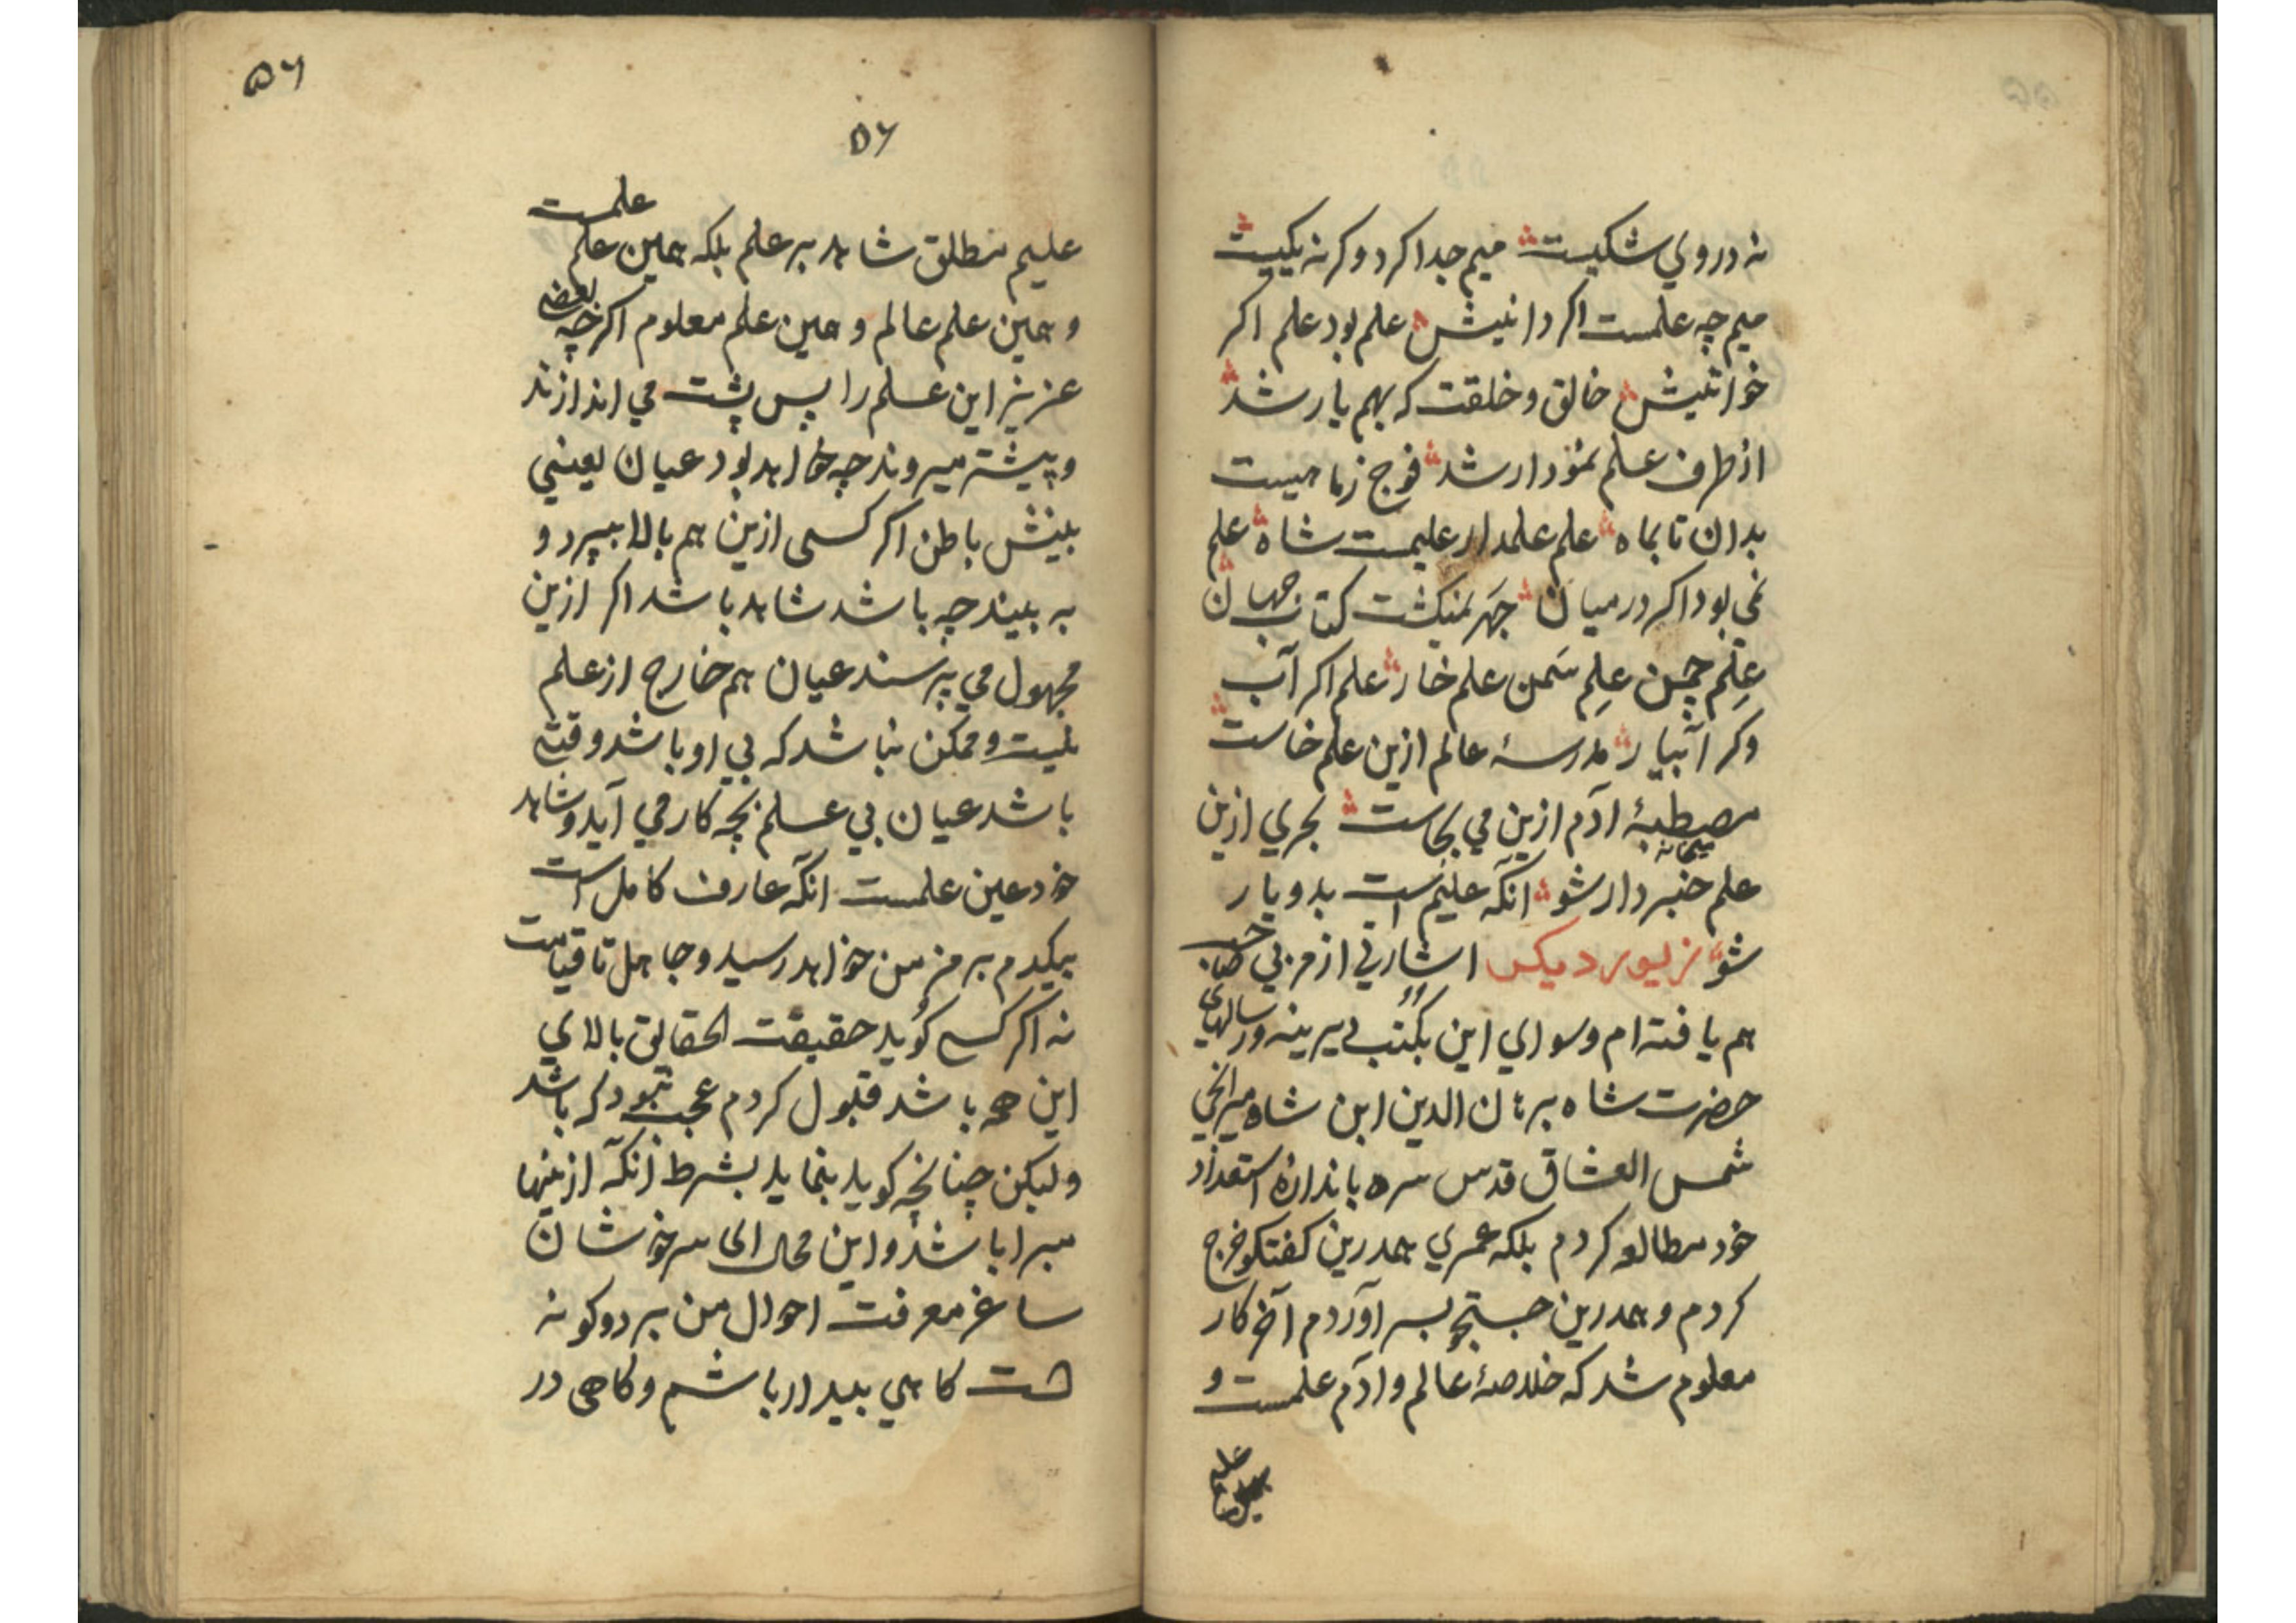 نه در وی شکیست میم جدا کرد و کرنه یکیست
میم چه علمست اکر دانیش علم بود علم اکر
خوانیش خالق و خلقت که بهم یار شد
از طرف علم نمودار شد فوج ز ماهیست
بدان تا بماه علم علمدار علیمست شاه علم
نمی بود اکر در میان جهر نمیکشت کتاب جهان
علم چمن علم سمن علم خار علم اکر آب
وکر آبیار مدرسهٔ عالم ازین علم خاست
مصطبهٔ آدم ازین می بجاست بحری ازین
میخانه
علم خبردار شو آنکه علیم است بدو یار
شو زیور دیکر اشارتی از مربی صاحب
هم یافته ام و سوای این بکتب دیرینه و رسالهای
حضرت شاه برهان الدین ابن شاه میرانجی
شمس العشاق قدس سره باندازهٔ استعداد
خود مطالعه کردم بلکه عمری همدرین کفتکو خرج
کردم و همدرین جستجو بسر آوردم آخر کار
معلوم شد که خلاصهٔ عالم و آدم علمست و
۵۶
۵۶
علیم مطلق شاهد بر علم بلکه همین علم علمست
و همین علم عالم و همین علم معلوم اکرچه بعضی
عزیز این علم را پس پشت می اندازند
و پیشتر میروند چه خواهد بود عیان یعنی
بینش باطن اکر کسی ازین هم بالا ببرد و
به بیند چه باشد شاهد باشد اکر ازین
مجهول می پرسند عیان هم خارج از علم
نیست و ممکن نباشد که بی او باشد وقتی
باشد عیان بی علم بچه کار می آید و شاهد
خود عین علمست آنکه عارف کامل است
بیکدم برمز من خواهد رسید و جاهل تا قیامت
نه اکر کسی کوید حقیقت الحقایق بالای
این همه باشد قبول کردم عجب نبود که باشد
ولیکن چنانچه کوید بنماید بشرط آنکه ازینها
مبرا باشد و این محال ای سرخوشان
ساغر معرفت احوال من بر دو کونه
است کاهی بیدار باشم و کاهی در